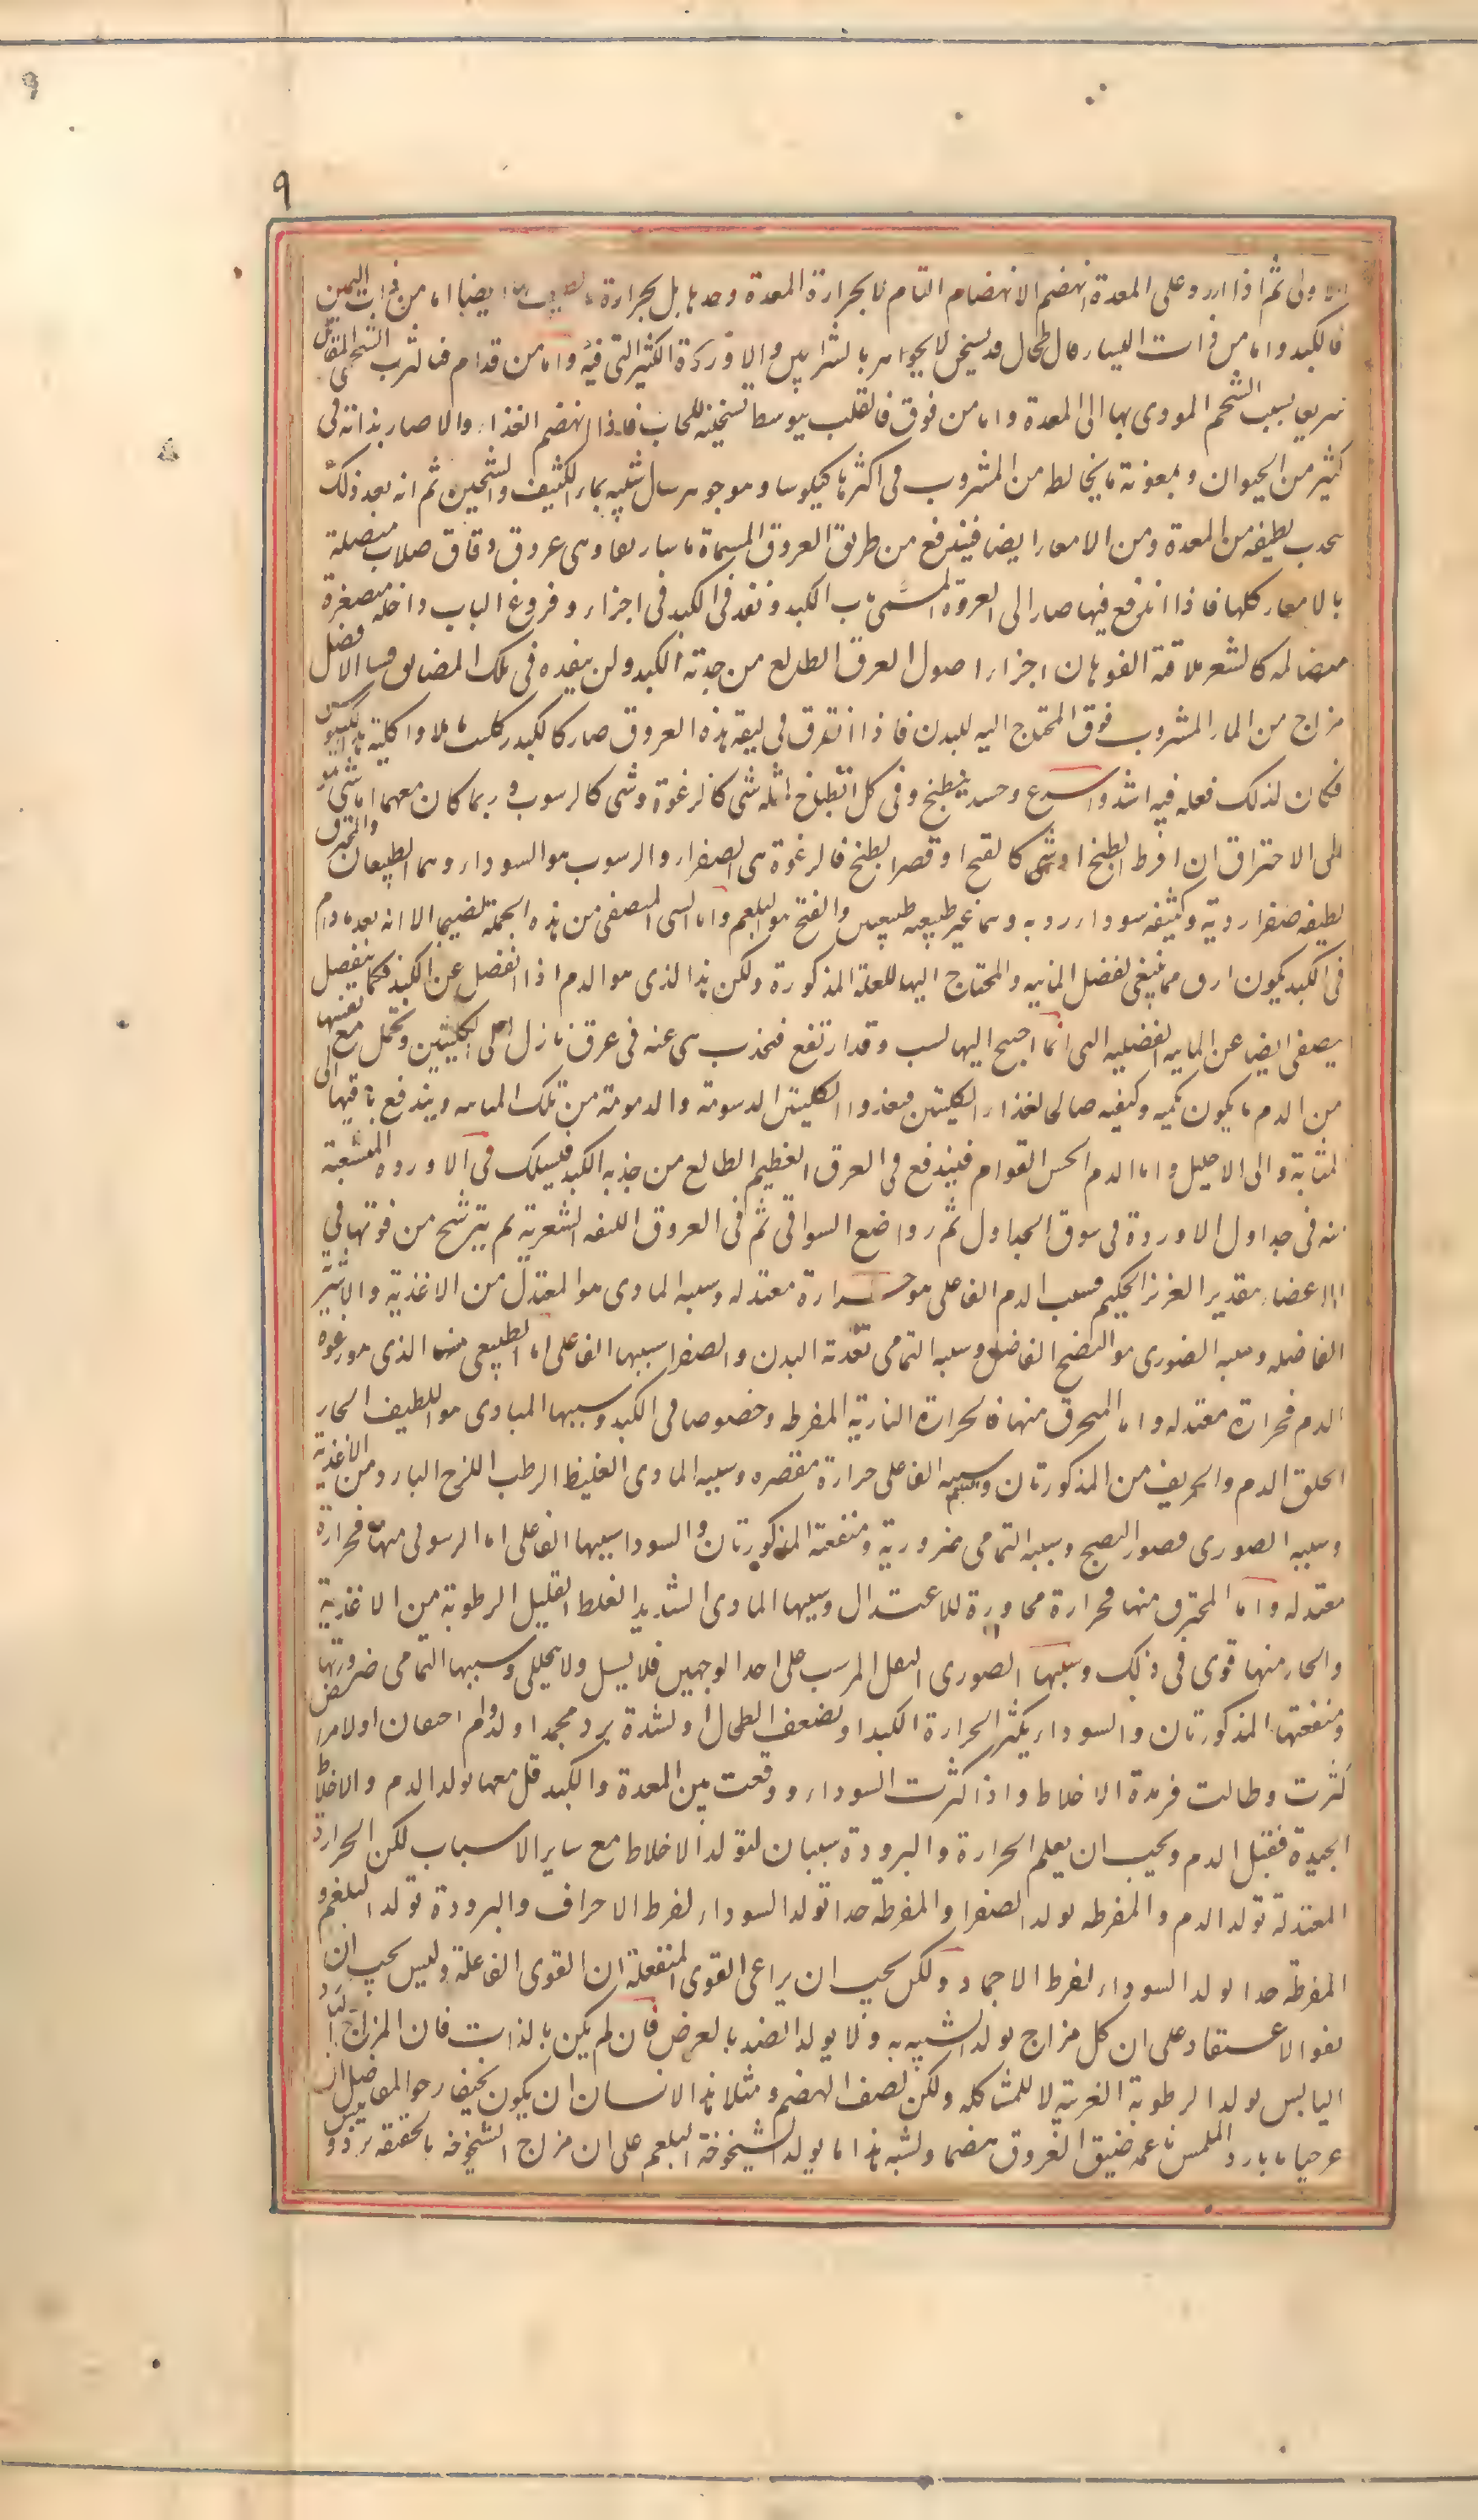 ٩
٩
ثم اذا ورد على المعدة انهضم الانهضام التام لا بحرارة المعدة وحدها بل بحرارة ما يضا اما من ذات اليمين
فالكبد واما من ذات اليسار فالطحال قد يسخن لا بجوهره بالشرايين والاوردة الكثيرة التى فيه واما من قدام فالثرب الشحمى القابل
سريعا بسبب الشحم المودى بها الى المعدة واما من فوق فالقلب بتوسط تسخينه للحجاب فاذا انهضم الغذاء والا صار بذاته فى
كثير من الحيوان وبمعونة ما يخالطه من المشروب فى اكثرها كيلوسا وهو جوهر سيال شبيه بماء الكثيف والشحين ثم انه بعد ذلك
يجذب لطيفه من المعدة ومن الامعاء ايضا فيندفع من طريق العروق المسماة ماساريقا وهى عروق دقاق صلاب متصلة
بالامعاء كلها فاذا اندفع فيها صار الى العروق المسمى باب الكبد ونفذ فى الكبد فى اجزاء وفروع الباب داخله متصغرة
متضايله كالشعر ملاقية الفوهات اجزاء اصول العرق الطالع من حدبة الكبد ولن ينفده فى تلك المضايق الا فضل
مزاج من الماء المشروب فوق المحتاج اليه للبدن فاذا تفرق فى ليفه هذه العروق صار كالكبد بكليتها ملاو اكليه لكيلوس
فكان لذلك فعله فيه اشد واسرع وحينئذ ينطبخ وفى كل انطباخ مثله شى كالرغوة وشى كالرسوب وربما كان معهما اما شى هو
الى الاحتراق ان افرط الطبخ او شى كالفج ان قصر الطبخ فالرغوة هى الصفراء والرسوب هو السوداء وهما طبيعيان والمحترق
لطيفه صفراء ردية وكثيفه سوداء ردية وهما غير طبيعيين والفج هو البلغم واما الشى المتصفى من هذه الجملة نضيجا الا انه بعد ما دام
فى الكبد يكون ارق مما ينبغى لفضل المائية والمحتاج اليها للعلة المذكورة ولكن هذا الذى هو الدم اذا انفصل عن الكبد فكما ينفصل
يصفى ايضا عن المائية الفضلية التى انما احتيج اليها لسبب وقد ارتفع فتجذب هى عنه فى عرق نازل الى الكليتين وتحمل مع نفسها
من الدم ما يكون بكميه وكيفيه صالحا لغذاء الكليتين فيغذو الكليتين الدسومة والدموية من تلك المائية ويندفع باقيها الى
المثانة والى الاحليل واما الدم الحسن القوام فيندفع فى العرق العظيم الطالع من حدبة الكبد فيسلك فى الاوردة المتشعبة
منه فى جداول الاوردة فى سوق الجداول ثم رواضع السواقى ثم فى العروق الليفيه الشعرية ثم يترشح من فوهتها فى
الاعضاء بتقدير العزيز الحكيم فسبب الدم الفاعلى هو حرارة معتدله وسببه المادى هو المعتدل من الاغذية والاشربة
الفاضله وسببه الصورى هو النضج الفاضل وسببه التمامى تغذية البدن والصفراء سببها الفاعلى اما الطبيعى منها الذى هو رغوة
الدم فحرارة معتدله واما المحترق منها فالحرارة النارية المفرطه وخصوصا فى الكبد وسببها المادى هو اللطيف الحار
الحلو الدسم والحريف من المذكورتان وبلغم سببه الفاعلى حرارة مقصره وسببه المادى الغليظ الرطب اللزج البارد من الاغذية
وسببه الصورى قصور النضج وسببه التمامى ضرورية ومنفعته المذكورتان والسوداء سببها الفاعلى اما الرسوبى منها فحرارة
معتدله واما المحترق منها فحرارة مجاوزة للاعتدال وسببها المادى الشديد الغلظ القليل الرطوبة من الاغذية
والحار منها قوى فى ذلك وسببها الصورى الثفل المترسب على احد الوجهين فلا يسيل ولا يتحلل وسببها التمامى ضرورتها
ومنفعتها المذكورتان والسوداء يكثر لحرارة الكبد او لضعف الطحال او لشدة برد مجمد او لدوام احتقان او لامراض
كثرت وطالت فرمدت الاخلاط واذا كثرت السوداء ووقعت بين المعدة والكبد قل معها تولد الدم والاخلاط
الجيدة فقبل الدم ويجب ان يعلم الحرارة والبرودة سببان لتولد الاخلاط مع ساير الاسباب لكن الحرارة
المعتدلة تولد الدم والمفرطه تولد الصفرا والمفرطة جدا تولد السوداء لفرط الاحراق والبرودة تولد البلغم و
المفرطة جدا تولد السوداء لفرط الاجماد ولكن يجب ان يراعى القوى المنفعلة ان القوى الفاعلة وليس يجب ان
يقفوا الاعتقاد على ان كل مزاج تولد الشبيه به ولا يولد الضد بالعرض فان لم يكن بالذات فان المزاج البارد
اليابس يولد الرطوبة الغريبة لا للمشاكله ولكن لضعف الهضم ومثلا هذا الانسان ان يكون نحيفا رخو المفاصل
عرجبا ما بارد الملمس ناعمه ضيق العروق منهضما ولشبه هذا ما يولد الشيخوخة البلغم على ان مزاج الشيخوخة بالحقيقة برد و